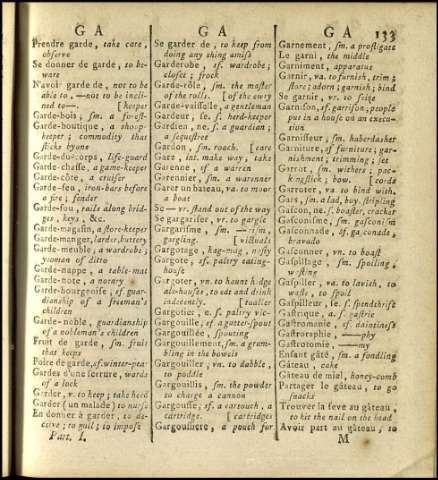 G A
G A
G A
133
Prendre garde, take care,
observe
Se donner de garde, to be-
ware
N'avoir garde de, not to be
able to, —not to be incli-
ned to—. [keeper
Garde-bois, sm. a forest-
Garde-boutique, a shop-
keeper; commodity that
sticks byone
Garde-du-corps, life-guard
Garde-chasse, a game-keeper
Garde-côte, a cruiser
Garde-feu, iron-bars before
a fire; fender
Garde-fou, rails along brid-
ges, keys, &c.
Garde-magasin, a store-keeper
Garde-manger, larder, buttery
Garde-meuble; a wardrobe;
yeoman of ditto
Garde-nappe, a table-mat
Garde-note, a notary
Garde-bourgeoise, sf. guar-
dianship of a freeman's
children
Garde-noble, guardianship
of a nobleman's children
Fruit de garde, sm. fruit
that keeps
Poire de garde, sf. winter-pear
Gardes d'une serrure, wards
of a lock
Garder, v. to keep; take heed
Garder (un malade) to nurse
En donner à garder, to de-
ceive; to gull; to impose
Part. I.
Se garder de, to keep from
doing any thing amiss
Garderobe, sf. wardrobe;
closet; frock
Garde-rôle, sm. the master
of the rolls. [of the ewry
Garde-vaisselle, a gentleman
Gardeur, se, s. herd-keeper
Gardien, ne, s. a guardian;
a sequestree
Gardon, sm. roach. [care
Gare, int. make way, take
Garenne, sf. a warren
Garennier, sm. a warrener
Garer un bateau, va. to moor
a boat
Se— vr. stand out of the way
Se gargariser, vr. to gargle
Gargarisme, sm. —rism,
gargling. [victuals
Gargotage, kag-mag, nasty
Gargote, sf. paltry eating-
house
Gargoter, vn. to haunt hedge
ale-houses, to eat and drink
indecently. [tualler
Gargotier, e, s. paltry vic-
Gargouille, sf. a gutter-spout
Gargouillée, spouting
Gargouillement, sm. a gram-
bling in the bowels
Gargouiller, vn. to dabble,
to paddle
Gargouillis, sm. the powder
to charge a cannon
Gargousse, sf. a cartouch, a
cartridge. [cartridges
Gargoussiere, a pouch for
Garnement, sm. a profligate
Le garni, the middle
Garniment, apparatus
Garnir, va. to furnish, trim;
store; adorn; garnish; bind
Se garnir, vr. to seize
Garnison, sf. garrison; people
put in a house on an execu-
tion
Garnisseur, sm. haberdasher
Garniture, sf. furniture; gar-
nishment; trimming; set
Garrot, sm. withers; a pac-
kingstick; bow. [to cord
Garroter, va. to bind with,
Gars, sm. a lad, boy, stripling
Gascon, ne, s. boaster, cracker
Gasconisme, sm. gasconism
Gasconnade, sf. gasconade;
bravado
Gasconner, vn. to boast
Gaspillage, sm. spoiling,
wasting
Gaspiller, va. to lavish, to
waste, to spoil
Gaspilleur, se, s. spendthrift
Gastrique, a. s. gastric
Gastronomie, sf. daintiness
Gastroraphie, —phy
Gastrotomie, ——my
Enfant gâté, sm. a fondling
Gâteau, cake
Gâteau de miel, honey-comb
Partager le gâteau, to go
snacks
Trouver la feve au gâteau,
to hit the nail on the head
Avoir part au gâteau, to
M